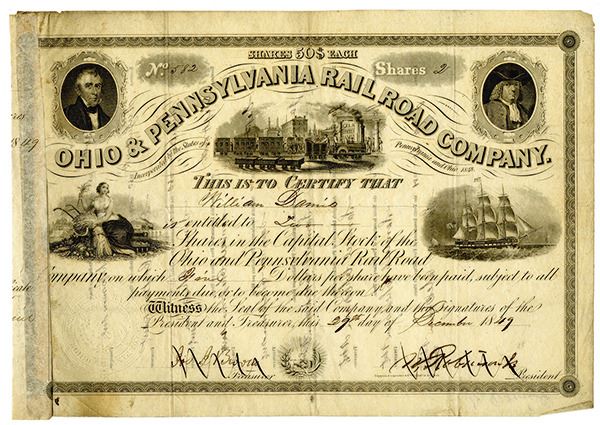 SHARES 50$ EACH
No. 582
Shares 2
OHIO & PENNSYLVANIA RAIL ROAD COMPANY.
Incorporated by the States of
Pennsylvania and Ohio 1848.
THIS IS TO CERTIFY THAT
William
is entitled to Two
Shares in the Capital Stock of the
Ohio and Pennsylvania Rail Road
Company, on which Dollars per share have been paid, subject to all
payments due, or to become due thereon.
Witness the Seal of the said Company and the signatures of the
President and Treasurer, this 29th day of December 1849
Treasurer
President